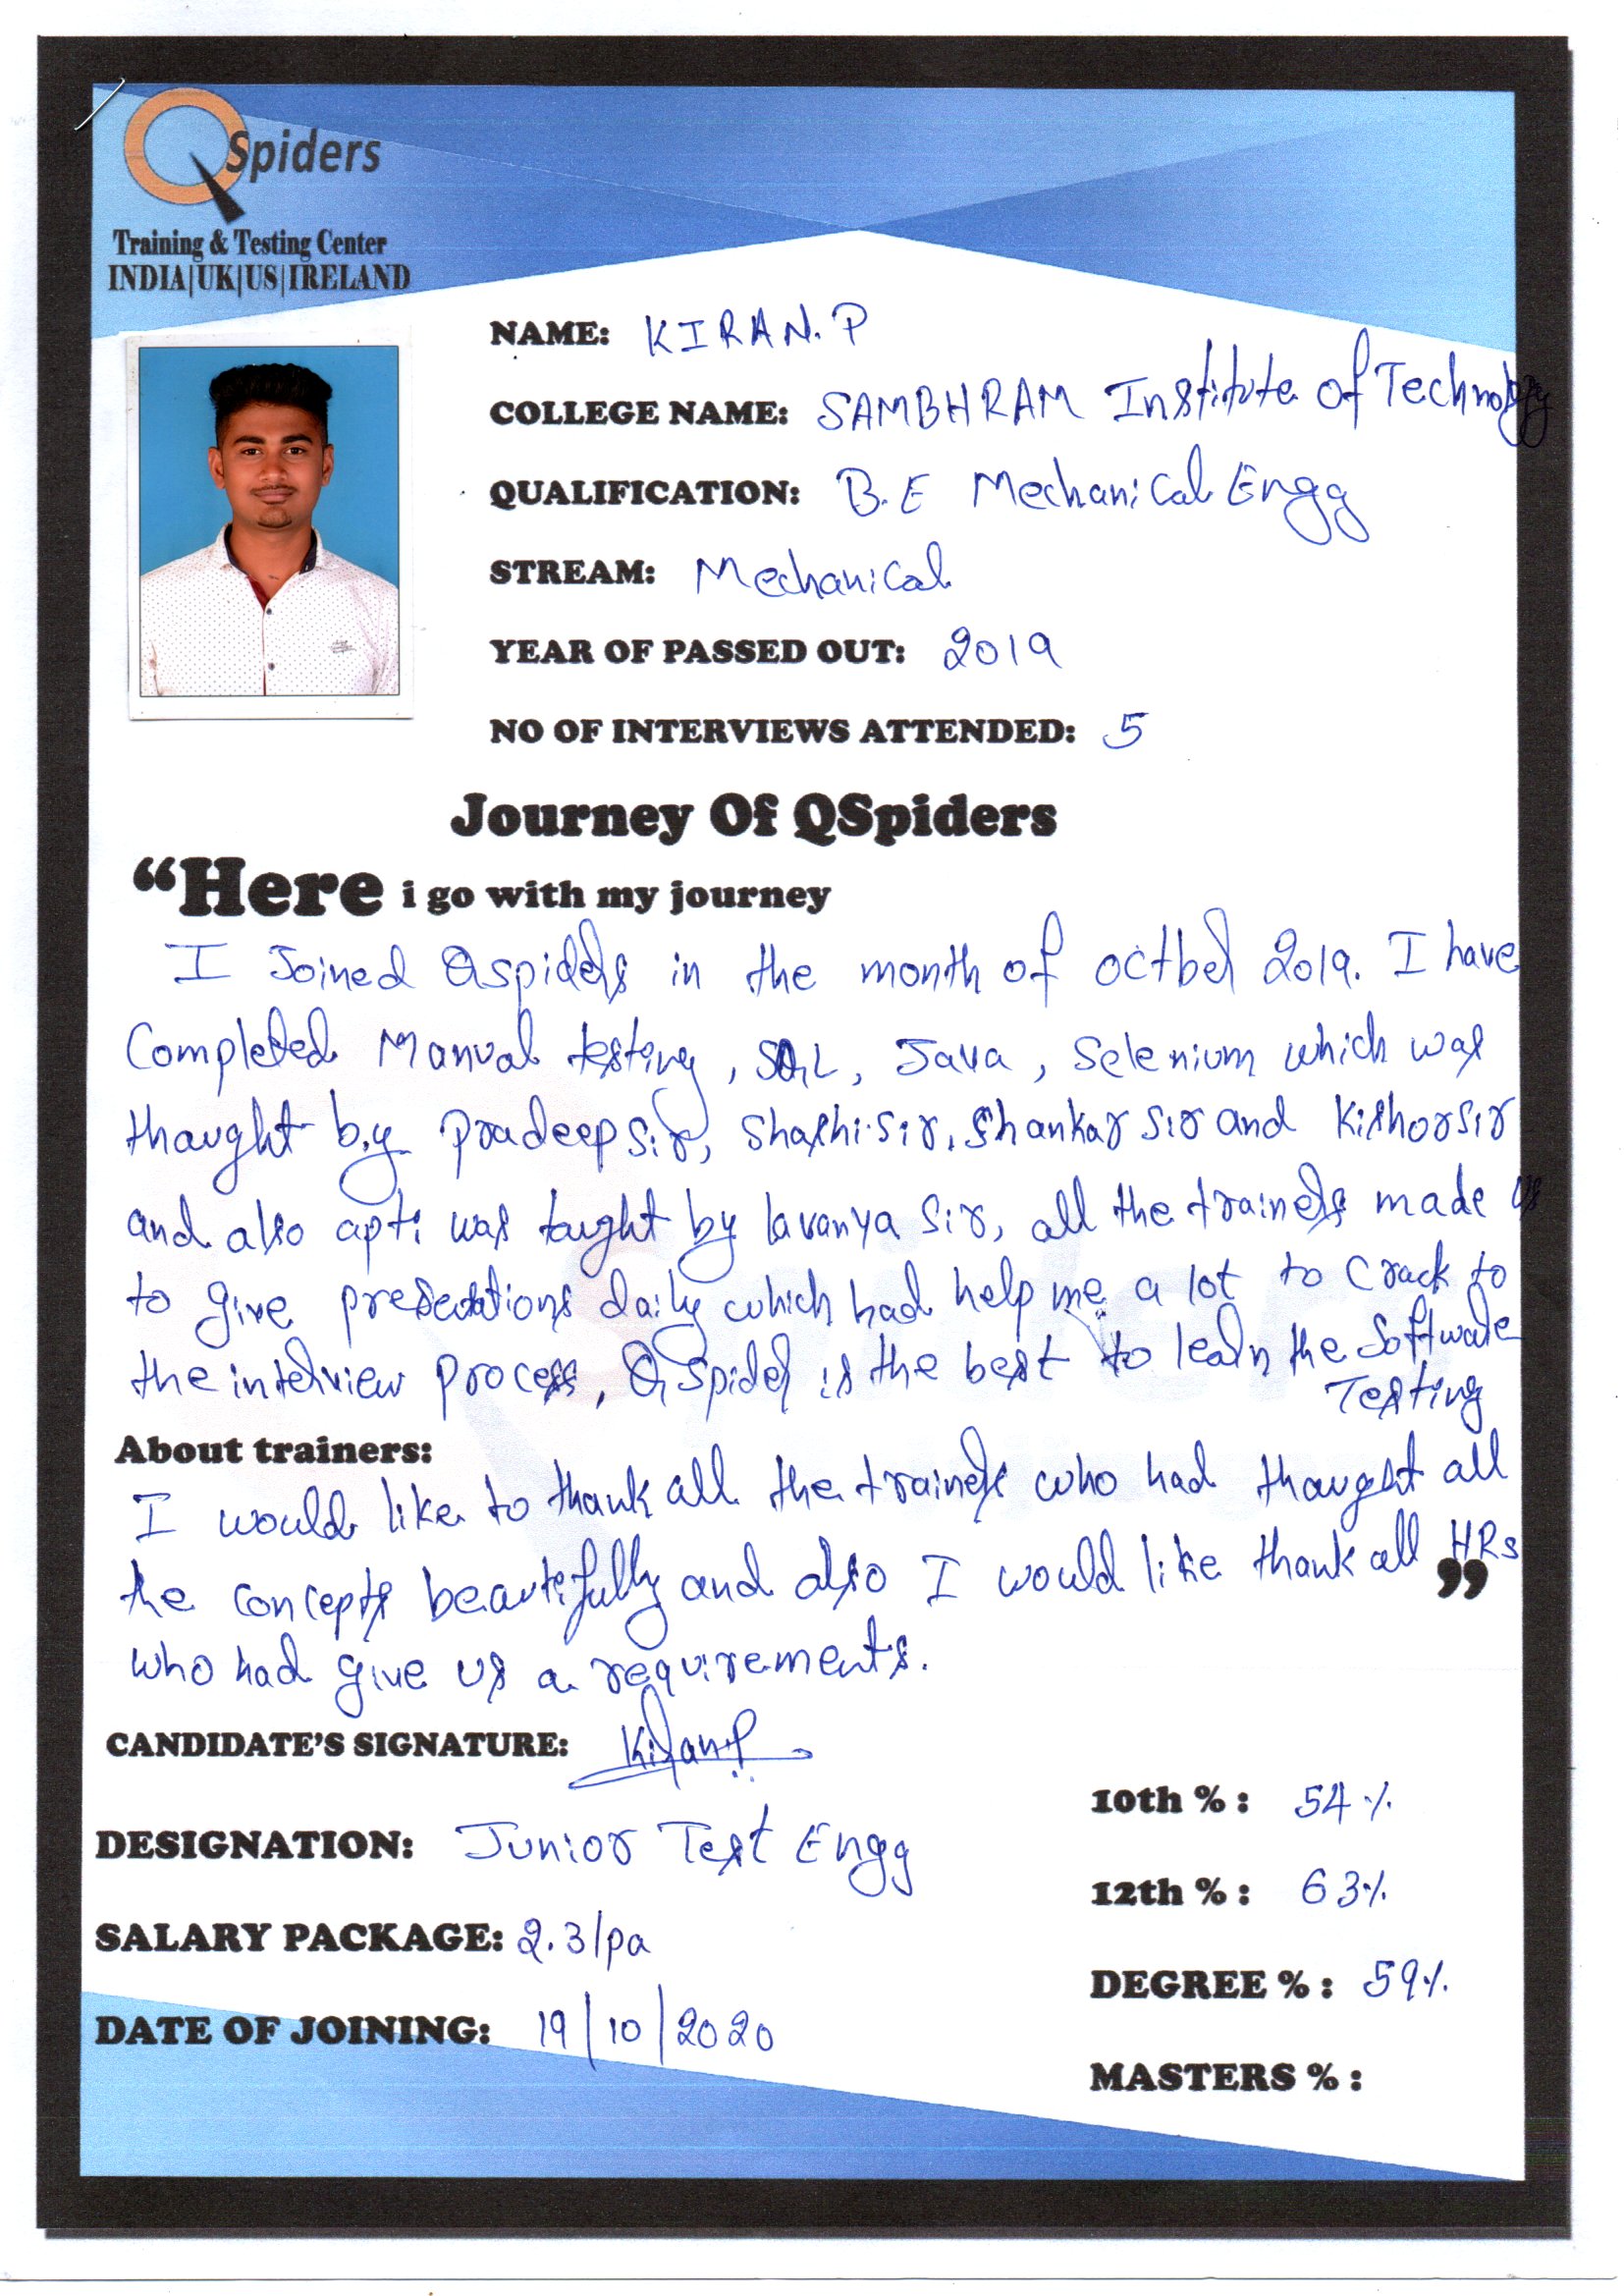 QSpiders
Training & Testing Center
INDIA|UK|US|IRELAND
NAME: KIRAN. P
COLLEGE NAME: SAMBHRAM Institute of Technology
QUALIFICATION: B.E Mechanical Engg
STREAM: Mechanical
YEAR OF PASSED OUT: 2019
NO OF INTERVIEWS ATTENDED: 5
Journey Of QSpiders
“Here i go with my journey
I Joined Qspiders in the month of octber 2019. I have
Completed Manual testing, SQL, Java, Selenium which was
thaught by Pradeep sir, Shashi sir, Shankar sir and Kishor sir
and also apti was taught by lavanya Sir, all the trainers made us
to give presentations daily which had help me a lot to Crack to
the interview process, Q Spider is the best to learn the Software
Testing
About trainers:
I would like to thank all the trainers who had thaught all
the concepts beautifully and also I would like thank all HRs ”
who had give us a requirements.
CANDIDATE'S SIGNATURE: Kiran P
10th % : 54%
DESIGNATION: Junior Test Engg
12th % : 63%
SALARY PACKAGE: 2.3/pa
DEGREE % : 59%
DATE OF JOINING: 19/10/2020
MASTERS % :